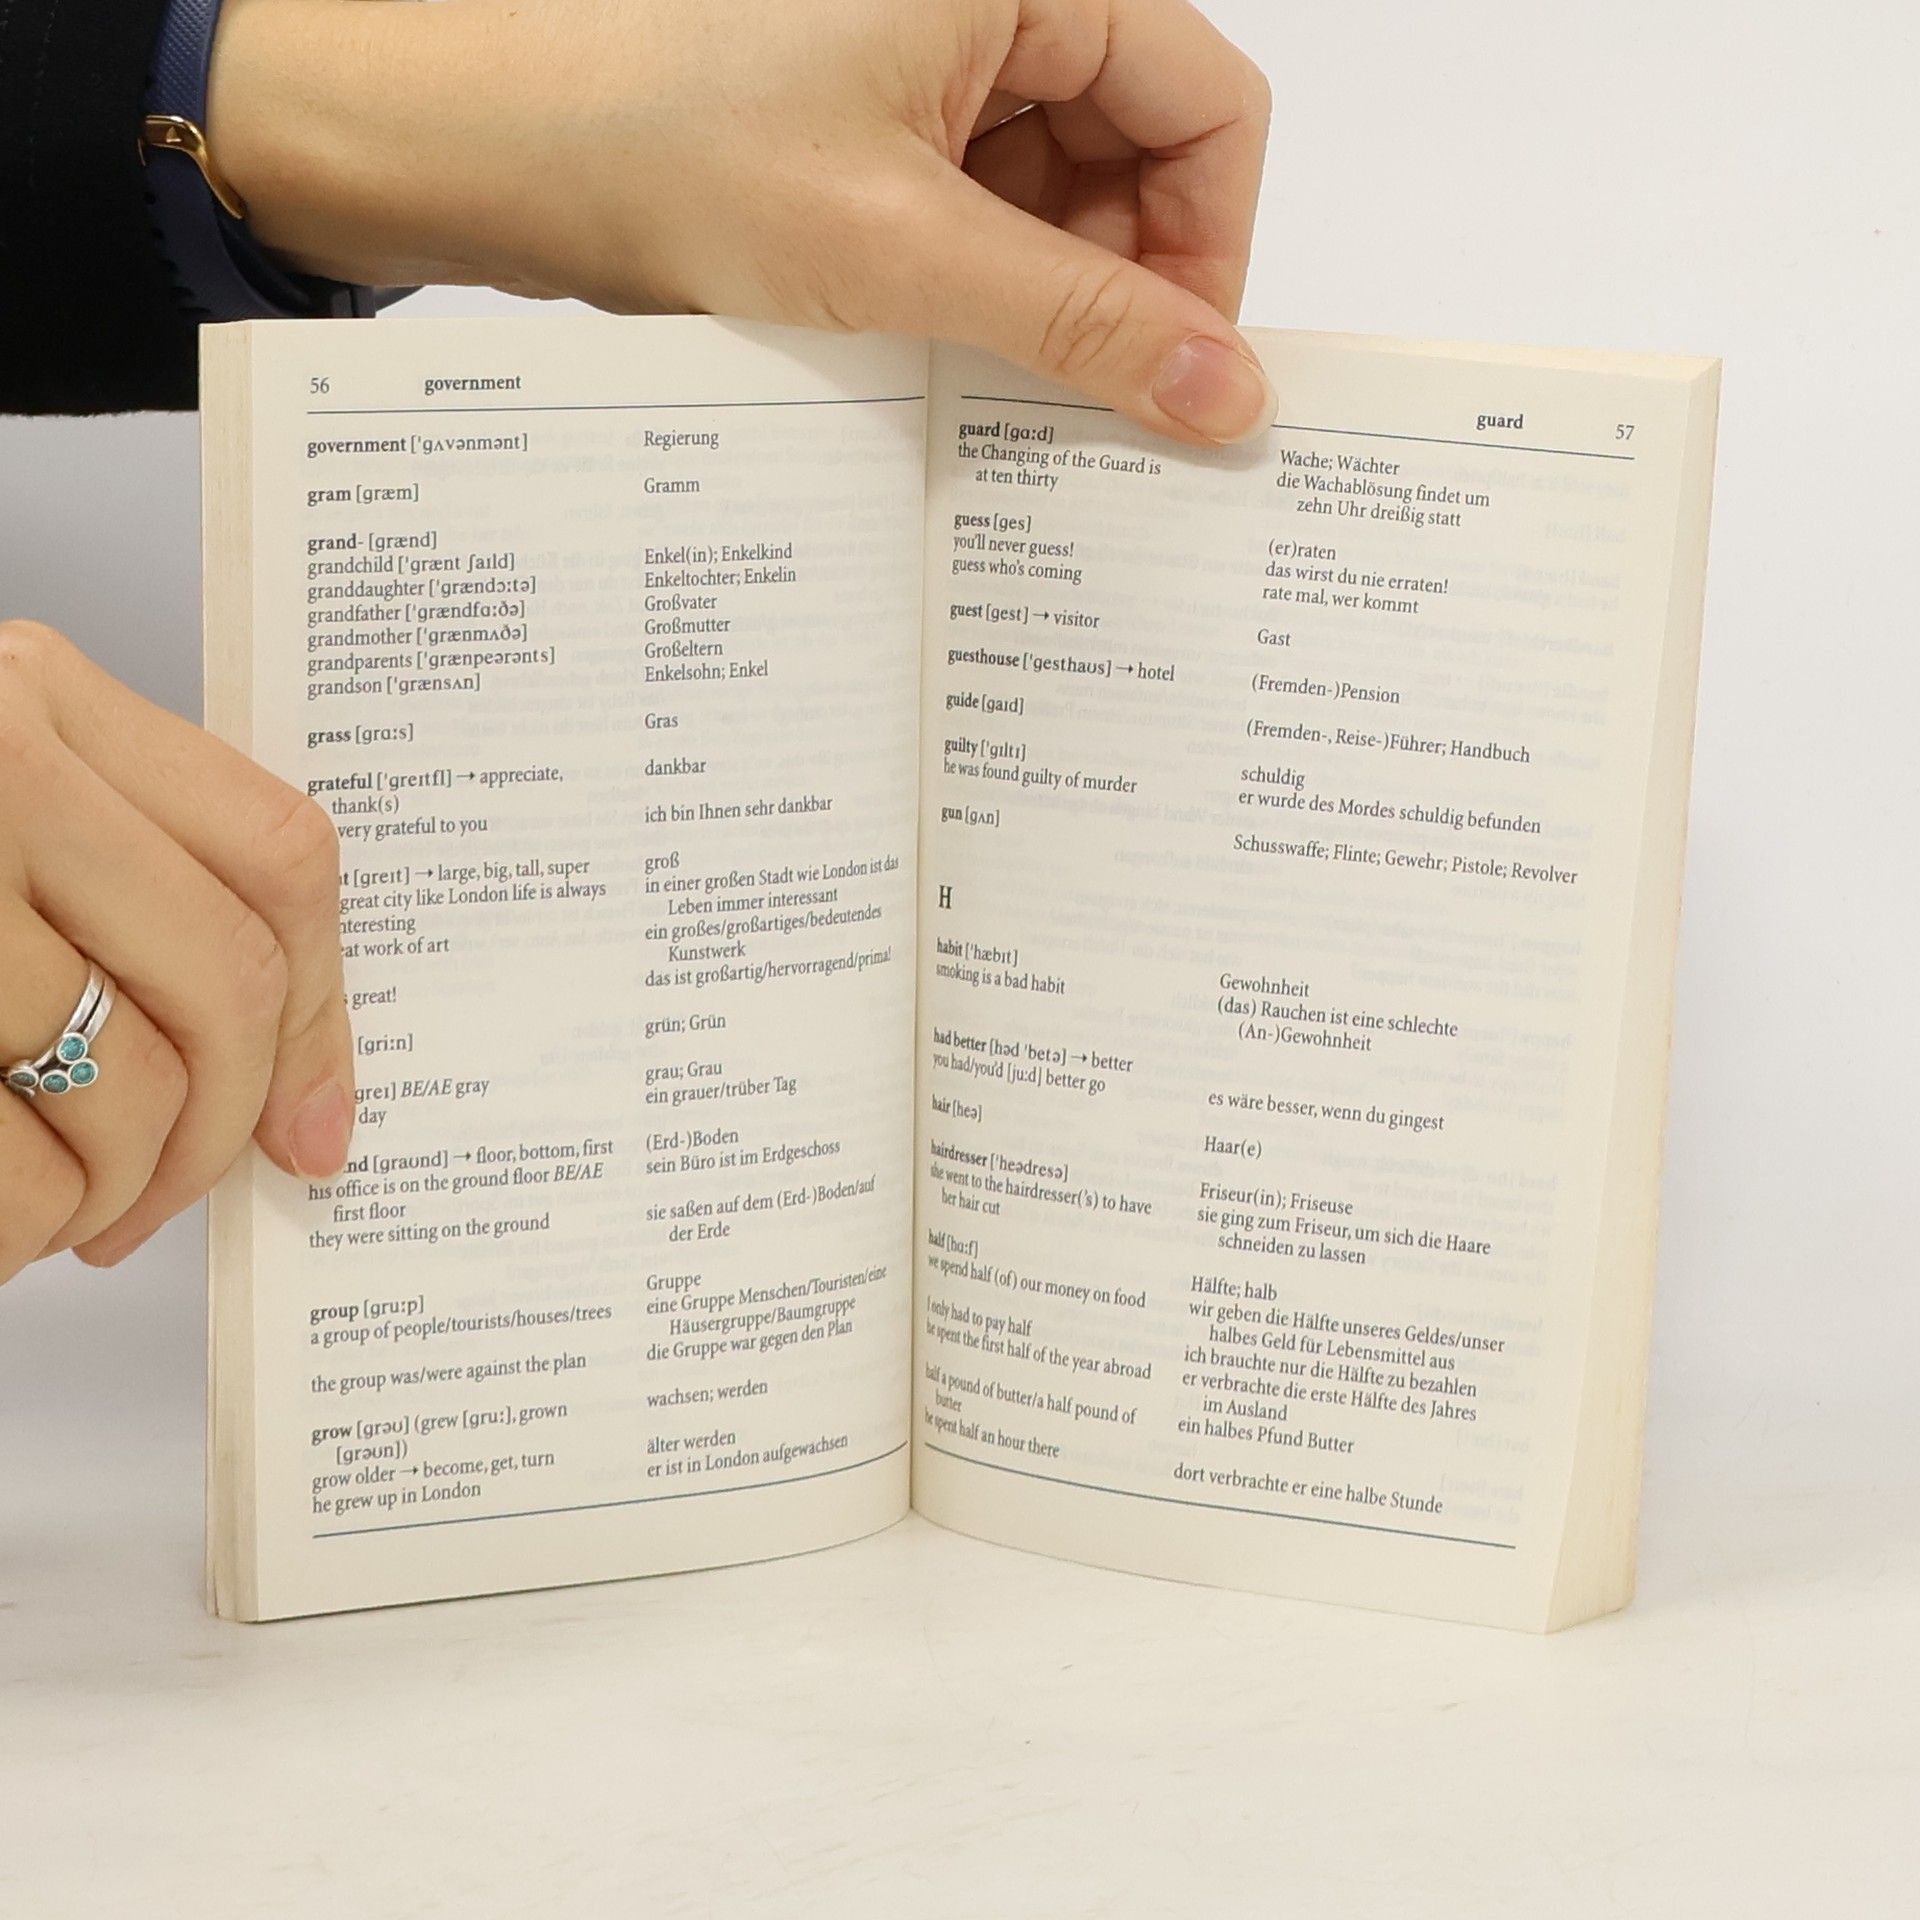 56 government
government [ˈgʌvənmənt] Regierung
gram [græm] Gramm
grand- [grænd]
grandchild [ˈgrænt ʃaɪld] Enkel(in); Enkelkind
granddaughter [ˈgrændɔːtə] Enkeltochter; Enkelin
grandfather [ˈgrændfɑːðə] Großvater
grandmother [ˈgrænmʌðə] Großmutter
grandparents [ˈgrænpeərənts] Großeltern
grandson [ˈgrænsʌn] Enkelsohn; Enkel
grass [grɑːs] Gras
grateful [ˈgreɪtfl] → appreciate, dankbar
thank(s)
very grateful to you ich bin Ihnen sehr dankbar
[greɪt] → large, big, tall, super groß
great city like London life is always in einer großen Stadt wie London ist das
Leben immer interessant
work of art ein großes/großartiges/bedeutendes
Kunstwerk
great! das ist großartig/hervorragend/prima!
[griːn] grün; Grün
greɪ] BE/AE gray grau; Grau
day ein grauer/trüber Tag
[graʊnd] → floor, bottom, first (Erd-)Boden
his office is on the ground floor BE/AE sein Büro ist im Erdgeschoss
first floor
they were sitting on the ground sie saßen auf dem (Erd-)Boden/auf
der Erde
group [gruːp] Gruppe
a group of people/tourists/houses/trees eine Gruppe Menschen/Touristen/eine
Häusergruppe/Baumgruppe
the group was/were against the plan die Gruppe war gegen den Plan
grow [grəʊ] (grew [gruː], grown wachsen; werden
[grəʊn])
grow older → become, get, turn älter werden
he grew up in London er ist in London aufgewachsen
guard 57
guard [gɑːd] Wache; Wächter
the Changing of the Guard is die Wachablösung findet um
at ten thirty zehn Uhr dreißig statt
guess [ges] (er)raten
you'll never guess! das wirst du nie erraten!
guess who's coming rate mal, wer kommt
guest [gest] → visitor Gast
guesthouse [ˈgesthaʊs] → hotel (Fremden-)Pension
guide [gaɪd] (Fremden-, Reise-)Führer; Handbuch
guilty [ˈgɪltɪ] schuldig
he was found guilty of murder er wurde des Mordes schuldig befunden
gun [gʌn] Schusswaffe; Flinte; Gewehr; Pistole; Revolver
H
habit [ˈhæbɪt] Gewohnheit
smoking is a bad habit (das) Rauchen ist eine schlechte
(An-)Gewohnheit
had better [həd ˈbetə] → better
you had/you'd [juːd] better go es wäre besser, wenn du gingest
hair [heə] Haar(e)
hairdresser [ˈheədresə] Friseur(in); Friseuse
she went to the hairdresser('s) to have sie ging zum Friseur, um sich die Haare
her hair cut schneiden zu lassen
half [hɑːf] Hälfte; halb
we spend half (of) our money on food wir geben die Hälfte unseres Geldes/unser
halbes Geld für Lebensmittel aus
I only had to pay half ich brauchte nur die Hälfte zu bezahlen
he spent the first half of the year abroad er verbrachte die erste Hälfte des Jahres
im Ausland
half a pound of butter/a half pound of ein halbes Pfund Butter
butter
he spent half an hour there dort verbrachte er eine halbe Stunde